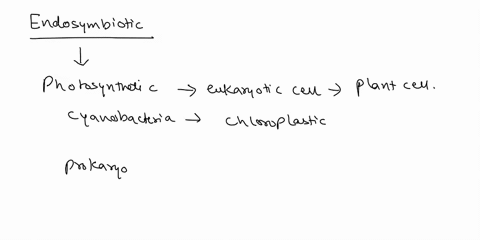 Endosymbiotic
↓
Photosynthetic → eukaryotic cell → plant cell.
Cyanobacteria → chloroplastic
prokaryo